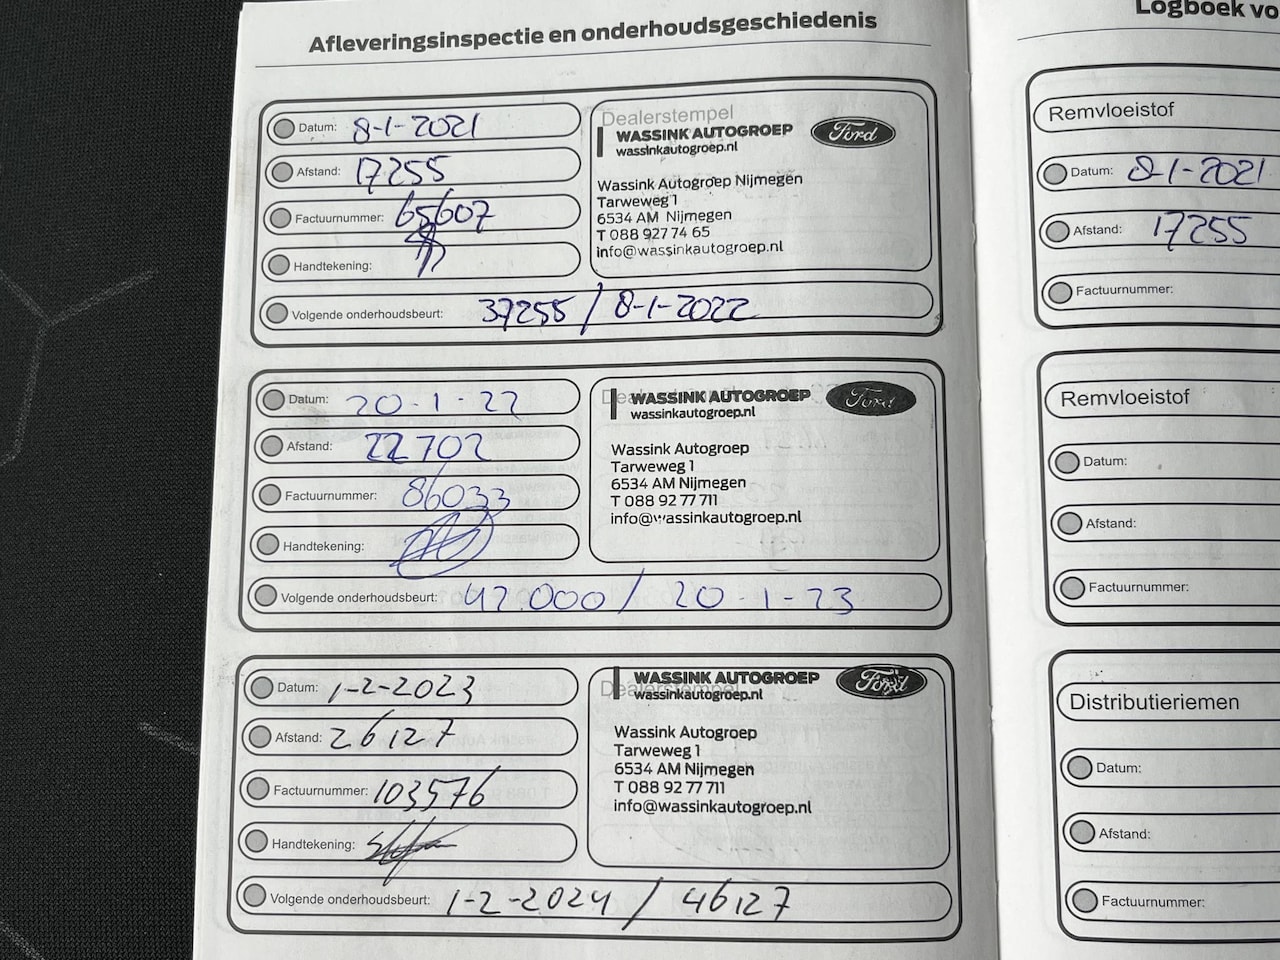 Afleveringsinspectie en onderhoudsgeschiedenis
Datum: 8-1-2021
Afstand: 17255
Factuurnummer: 65607
Handtekening:
Volgende onderhoudsbeurt: 37255 / 8-1-2022
Dealerstempel
WASSINK AUTOGROEP
wassinkautogroep.nl
Ford
Wassink Autogroep Nijmegen
Tarweweg 1
6534 AM Nijmegen
T 088 927 74 65
info@wassinkautogroep.nl
Datum: 20-1-22
Afstand: 22702
Factuurnummer: 86033
Handtekening:
Volgende onderhoudsbeurt: 42.000 / 20-1-23
WASSINK AUTOGROEP
wassinkautogroep.nl
Ford
Wassink Autogroep
Tarweweg 1
6534 AM Nijmegen
T 088 92 77 711
info@wassinkautogroep.nl
Datum: 1-2-2023
Afstand: 26127
Factuurnummer: 103576
Handtekening:
Volgende onderhoudsbeurt: 1-2-2024 / 46127
Dealerstempel
WASSINK AUTOGROEP
wassinkautogroep.nl
Ford
Wassink Autogroep
Tarweweg 1
6534 AM Nijmegen
T 088 92 77 711
info@wassinkautogroep.nl
Logboek vo
Remvloeistof
Datum: 8-1-2021
Afstand: 17255
Factuurnummer:
Remvloeistof
Datum:
Afstand:
Factuurnummer:
Distributieriemen
Datum:
Afstand:
Factuurnummer: